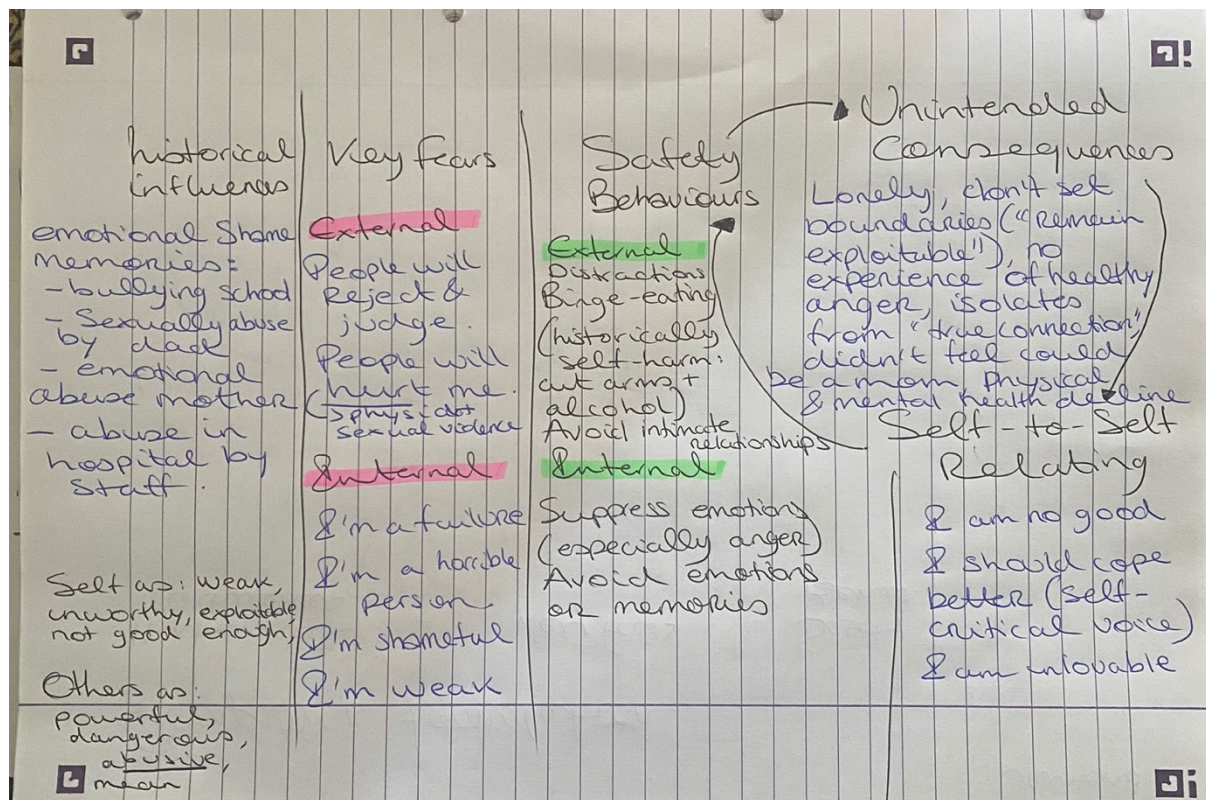 historical
influences
emotional Shame
memories:
- bullying school
- Sexually abuse
by dad
- emotional
abuse mother
- abuse in
hospital by
Staff.
Self as: weak,
unworthy, exploitable,
not good enough,
Others as:
powerful,
dangerous,
abusive,
mean
Key fears
External
People will
Reject &
judge.
People will
hurt me.
↳ physical +
sexual violence
Internal
I'm a failure
I'm a horrible
person
I'm shameful
I'm weak
Safety
Behaviours
External
Distractions
Binge-eating
(historically
self-harm:
cut arms +
alcohol)
Avoid intimate
relationships
Internal
Suppress emotions
(especially anger)
Avoid emotions
or memories
Unintended
Consequences
Lonely, don't set
boundaries ("Remain
exploitable"), no
experience of healthy
anger, isolates
from "true connection",
didn't feel could
be a mom, physical
& mental health decline
Self-to-Self
Relating
I am no good
I should cope
better (self-
critical voice)
I am unlovable